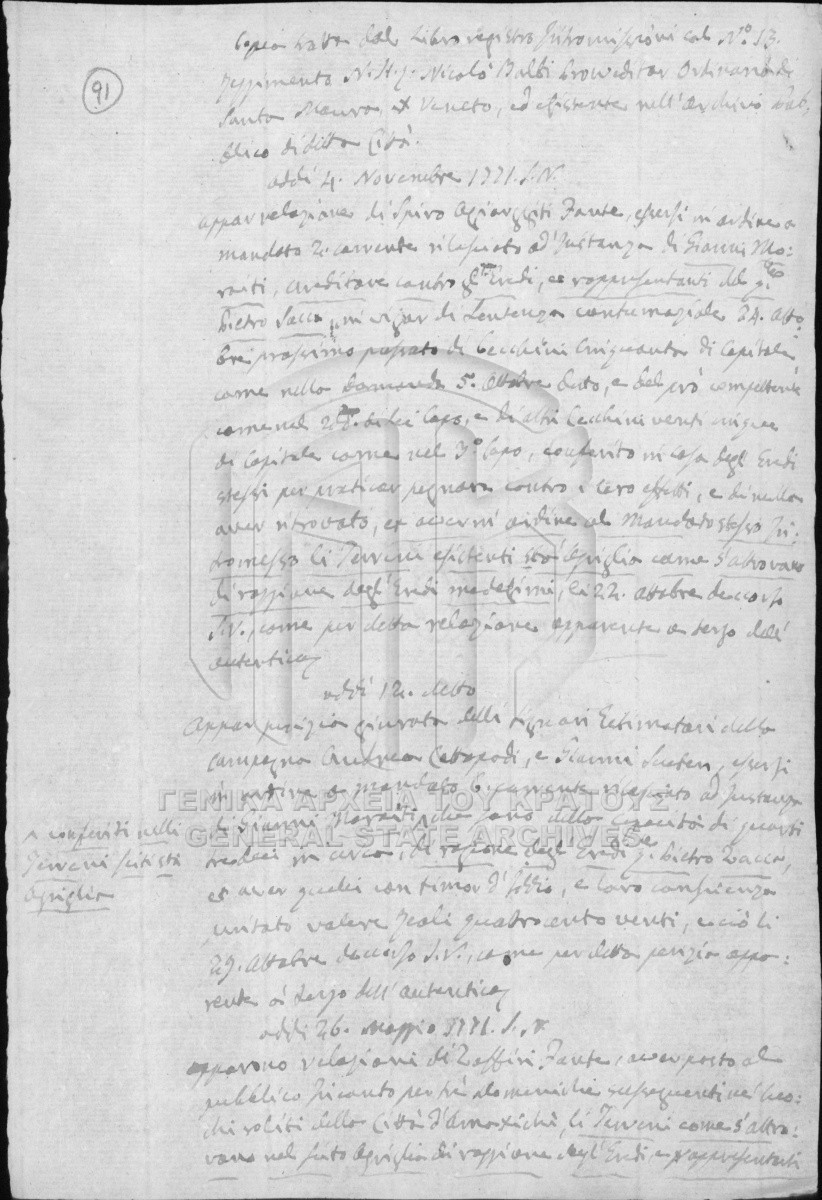 91
Copia tratta dal Libro registro Intromissioni col Nº 13.
Reggimento N. H. Nicolò Balbi Proveditor Ordinario di
Santa Maura, ex Veneto, ed esistente nell'archivio Pub,
blico di detta Città.
addi 4. Novembre 1771. S. N.
Appar relazione di Spiro Fante, essersi in ordine a
mandato 2. corrente rilasciato ad Instanza di Gianni Mo:
raiti, creditore contro gl'Eredi, e rappresentanti del q.
Pietro Zacca, in vigor di Sentenza contumaziale 24. otto
bre prossimo passato di Cecchini Cinquanta di Capitale
come nella domanda 5. Ottobre detto, e del prò competente
come nel 2do. di lei Capo, e di altri Cecchini venti cinque
di Capitale come nel 3º Capo, conferito in Casa degl'Eredi
stessi per praticar pegnora contro i loro effetti, e di nulla
aver ritrovato, et aver in ordine al Mandato stesso In:
tromesso li Terreni esistenti stò Apriglia come s'attrovano
di raggione degl'Eredi medesimi, li 22. ottobre decorso
S. V., come per detta relazione apparente a tergo dell'
autentica
addi 12. detto
Appar perizia giurata delli Signori Estimatori della
Campagna Andrea Cattapodi, e Gianni, essersi
in ordine a mandato 6. corrente rilasciato ad Instanza
di Gianni Moraiti, che sono della Capacità di quarti
tredeci in circa, di ragione degl'Eredi q. Pietro Zacca,
et aver quelli con timor d'Iddio, e loro conscienza
unitato valere Reali quattrocento venti, e ciò li
29. Ottobre decorso S. V., come per detta perizia appa:
rente à tergo dell'autentica
addi 26. Maggio 1771. S. N.
Apparono relazioni di Zaffiri Fante, aver posto al
pubblico Incanto per trè Domeniche susseguenti nei luo:
chi soliti della Città d'Amaxichi, li Terreni come s'attro:
vano nel sito Apriglia di raggione degl'Eredi, e rappresentanti
^ conferiti nelli
Terreni siti stà
Apriglia
ΓΕΝΙΚΑ ΑΡΧΕΙΑ ΤΟΥ ΚΡΑΤΟΥΣ
GENERAL STATE ARCHIVES